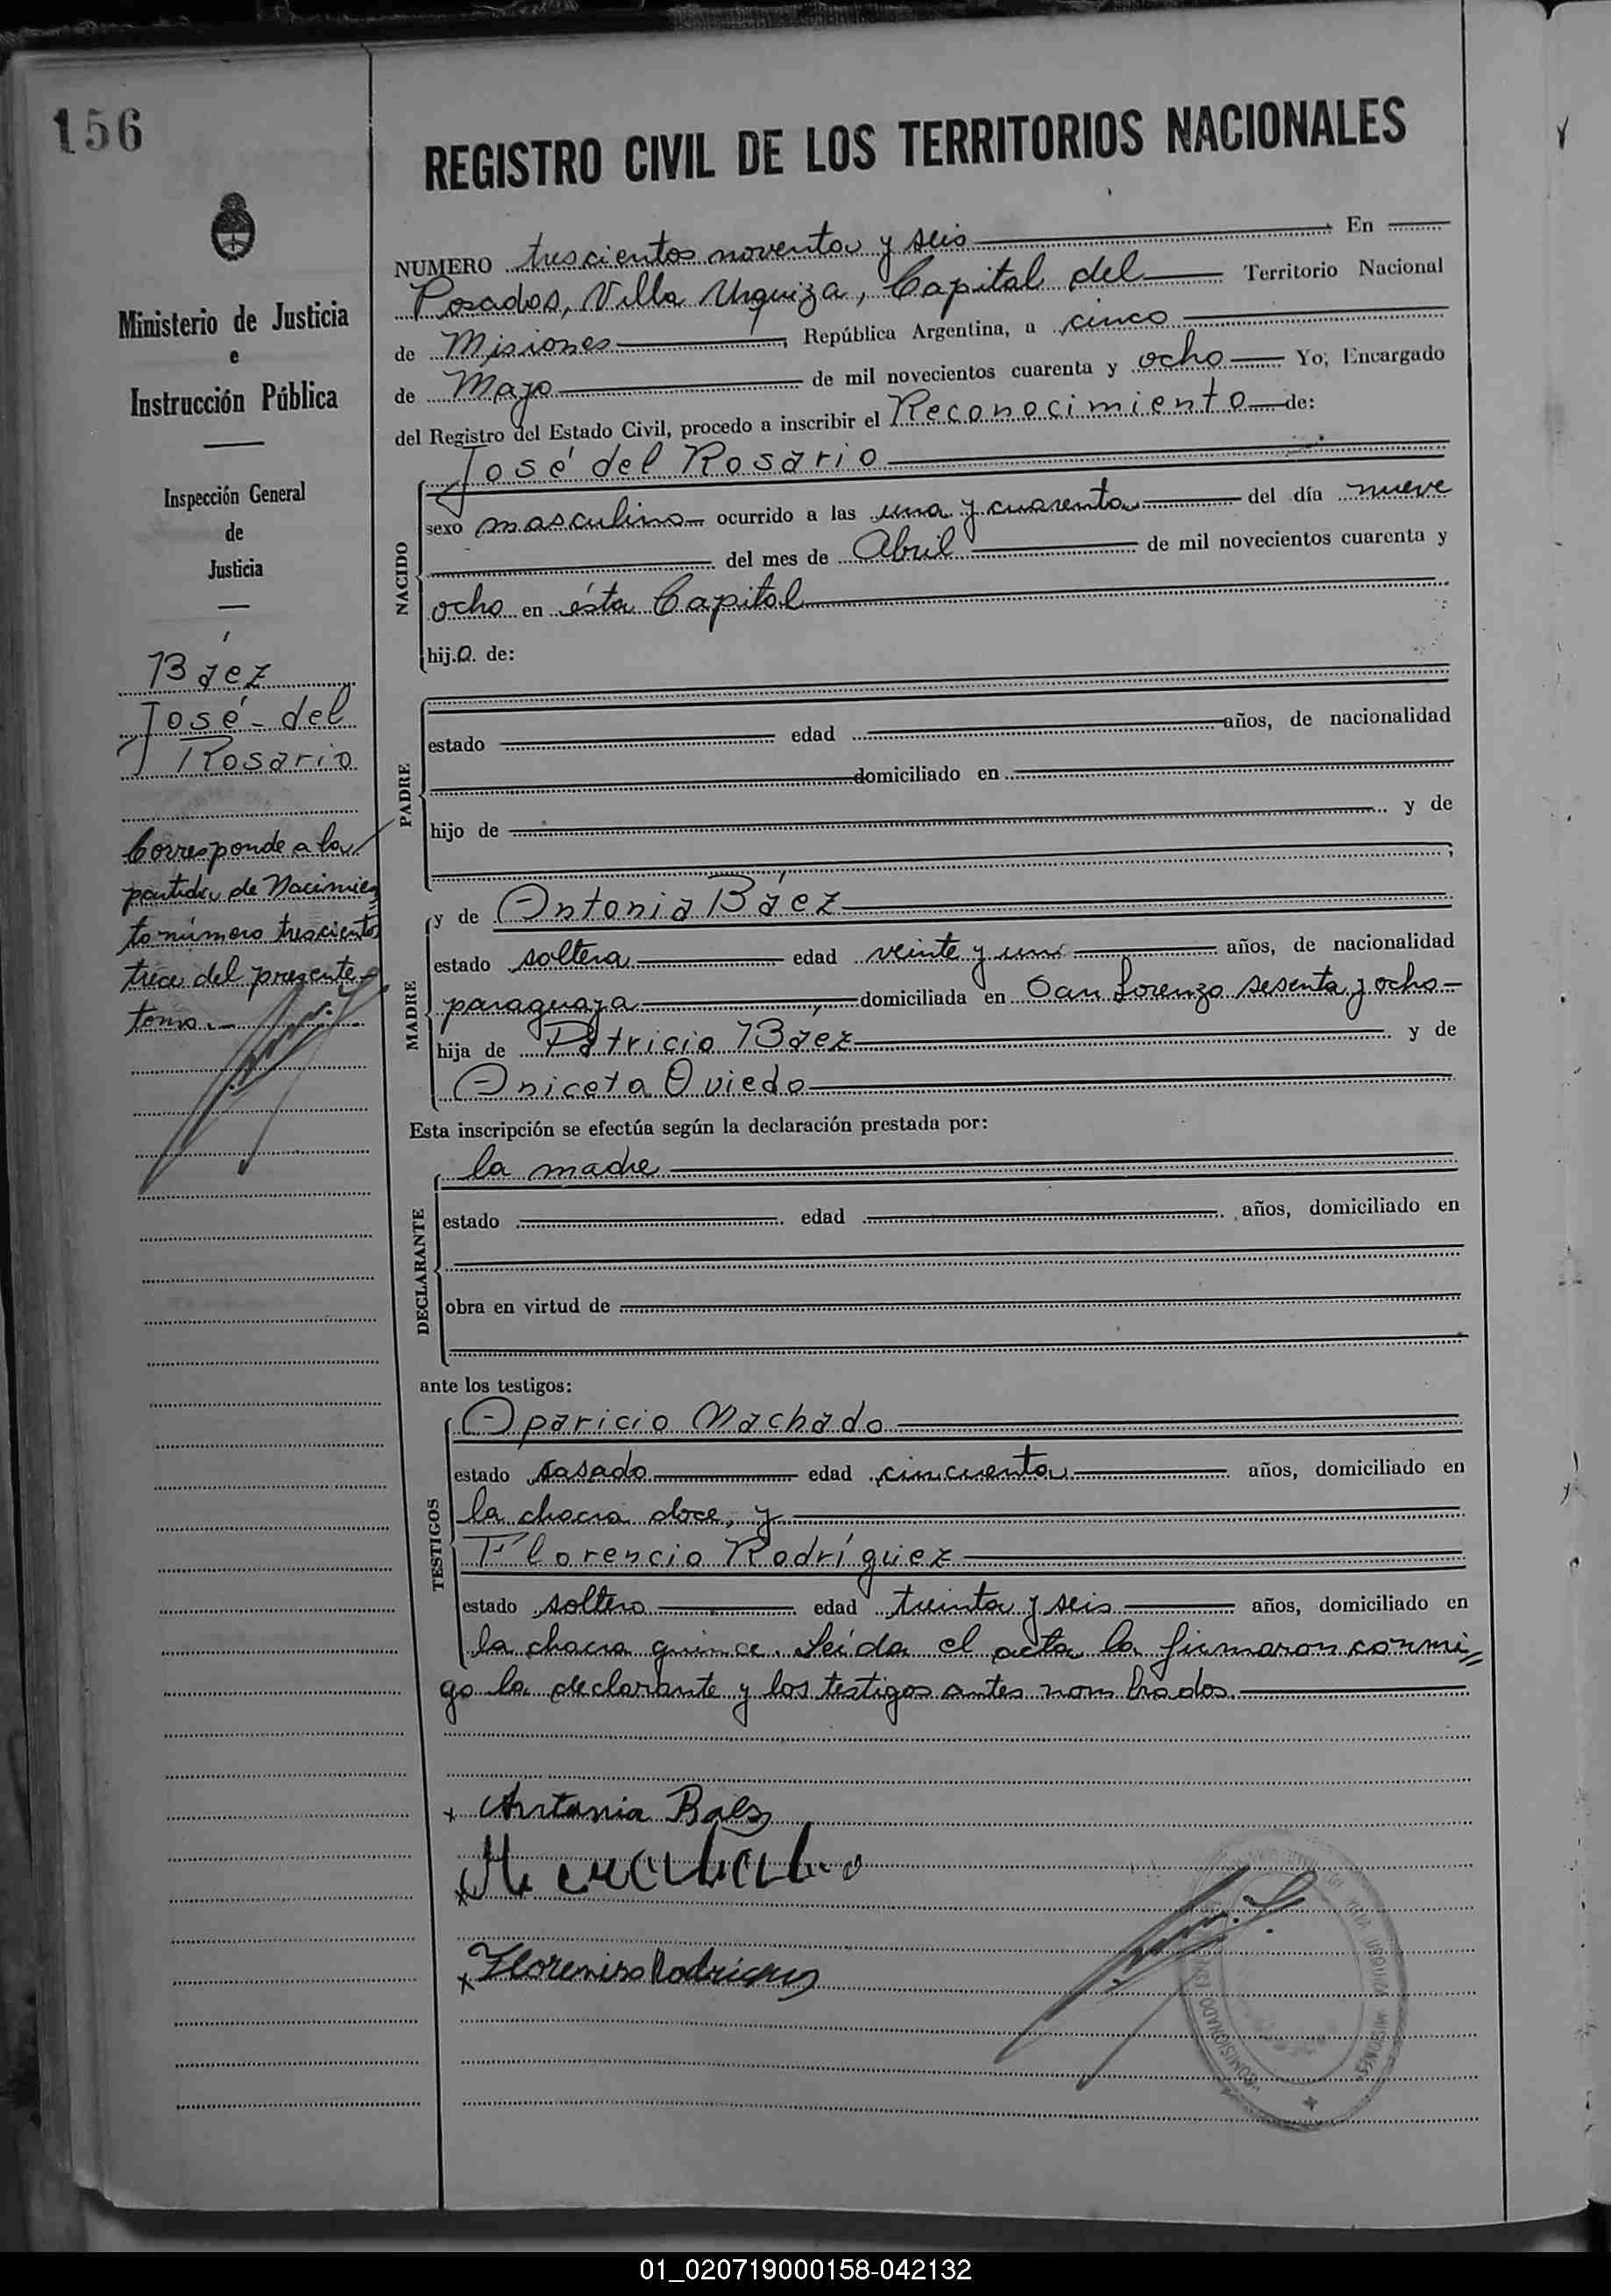 156
Ministerio de Justicia
e
Instrucción Pública
Inspección General
de
Justicia
Báez
José del
Rosario
Corresponde a la
partida de Nacimien
to número trescientos
trece del presente
tomo.-
REGISTRO CIVIL DE LOS TERRITORIOS NACIONALES
NUMERO trescientos noventa y seis En
Posadas, Villa Urquiza, Capital del Territorio Nacional
de Misiones, República Argentina, a cinco
de Mayo de mil novecientos cuarenta y ocho Yo, Encargado
del Registro del Estado Civil, procedo a inscribir el Reconocimiento de:
NACIDO
José del Rosario
sexo masculino ocurrido a las una y cuarenta del día nueve
del mes de Abril de mil novecientos cuarenta y
ocho en ésta Capital
hijo de:
PADRE
estado edad años, de nacionalidad
domiciliado en
hijo de y de
MADRE
y de Antonia Báez
estado soltera edad veinte y un años, de nacionalidad
paraguaya domiciliada en San Lorenzo sesenta y ocho
hija de Patricio Báez y de
Aniceta Oviedo
Esta inscripción se efectúa según la declaración prestada por:
DECLARANTE
la madre
estado edad años, domiciliado en
obra en virtud de
ante los testigos:
TESTIGOS
Aparicio Machado
estado casado edad cincuenta años, domiciliado en
la chacra doce, y
Florencio Rodríguez
estado soltero edad treinta y seis años, domiciliado en
la chacra quince. Leída el acta la firmaron conmi
go la declarante y los testigos antes nombrados.
x Antonia Baes
x
x Florencio Rodrigues
COMISIONADO VILLA URQUIZA MISIONES
01_020719000158-042132